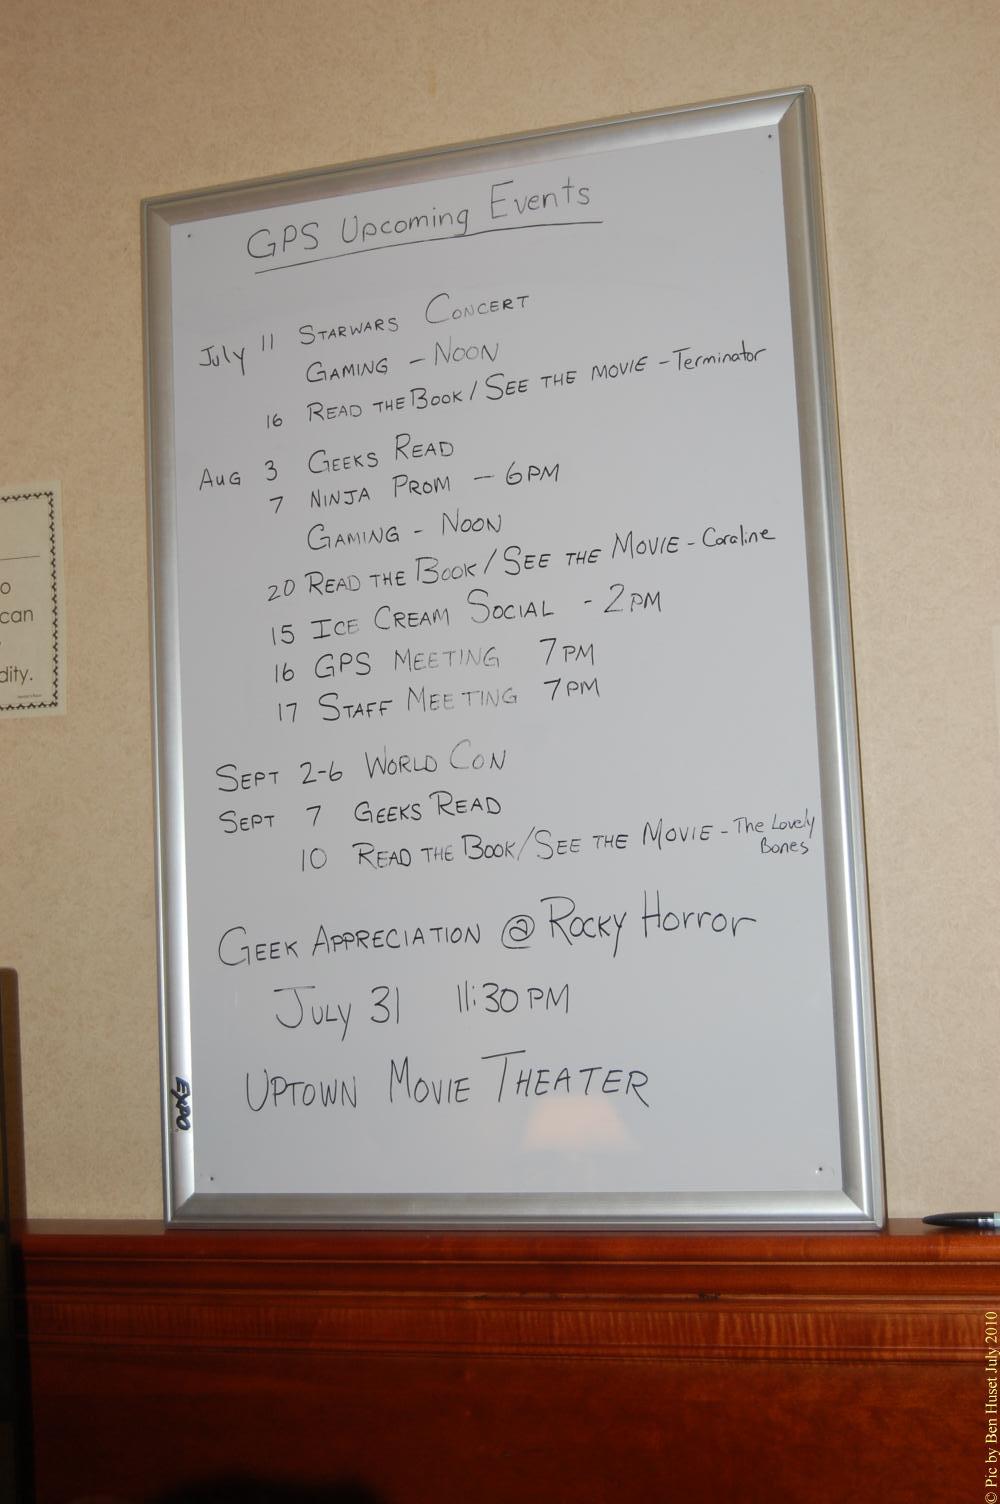 GPS Upcoming Events
July 11 STARWARS CONCERT
GAMING - NOON
16 READ THE BOOK / SEE THE MOVIE - Terminator
AUG 3 GEEKS READ
7 NINJA PROM - 6PM
GAMING - NOON
20 READ THE BOOK / SEE THE MOVIE - Coraline
15 ICE CREAM SOCIAL - 2PM
16 GPS MEETING 7PM
17 STAFF MEETING 7PM
SEPT 2-6 WORLD CON
SEPT 7 GEEKS READ
10 READ THE BOOK/SEE THE MOVIE - The Lovely
Bones
GEEK APPRECIATION @ ROCKY HORROR
JULY 31 11:30 PM
UPTOWN MOVIE THEATER
EXPO
o
can
dity.
© Pic by Ben Huset July 2010